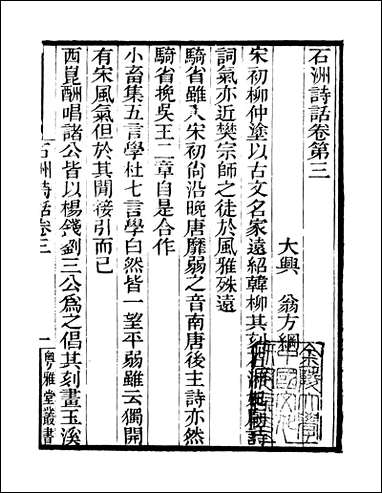 石洲詩話卷第三
大興　翁方綱
宋初柳仲塗以古文名家遠紹韓柳其刻石詩
詞氣亦近樊宗師之徒於風雅殊遠
騎省雖入宋初尙沿晚唐靡弱之音南唐後主詩亦然
騎省挽吳王二章自是合作
小畜集五言學杜七言學白然皆一望平弱雖云獨開
有宋風氣但於其閒接引而已
西崑酬唱諸公皆以楊錢劉三公爲之倡其刻畫玉溪
石洲詩話卷三　一　粵雅堂叢書